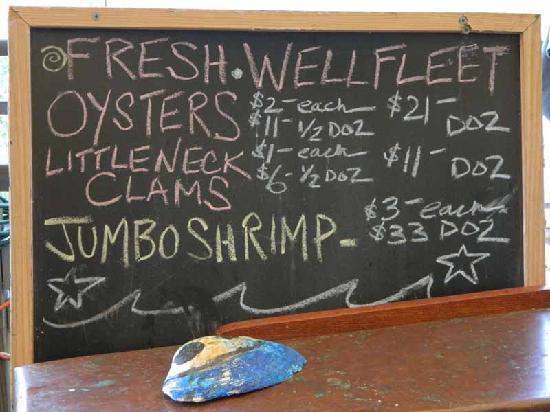 FRESH • WELLFLEET
OYSTERS $2- each $21- DOZ
$11- 1/2 DOZ
LITTLENECK $1- each $11- DOZ
CLAMS $6- 1/2 DOZ
JUMBO SHRIMP- $3- each
$33 DOZ